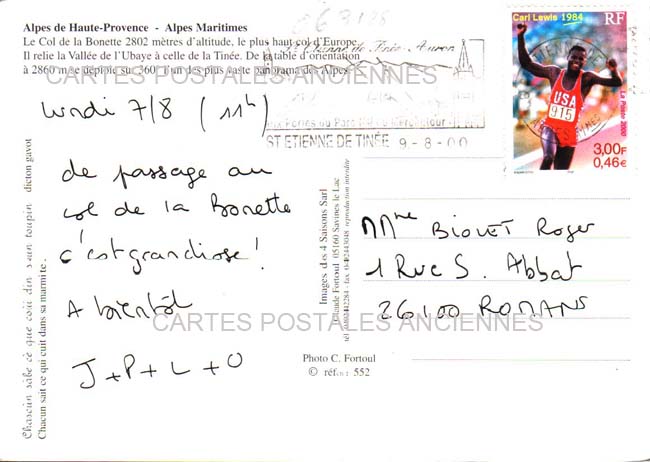 Alpes de Haute-Provence - Alpes Maritimes
Le Col de la Bonette 2802 mètres d'altitude, le plus haut col d'Europe.
Il relie la Vallée de l'Ubaye à celle de la Tinée. De la table d'orientation
à 2860 m se déploie sur 360° l'un des plus vaste panorama des Alpes
CARTES POSTALES ANCIENNES
lundi 7/8 (11h)
de passage au
col de la Bonette
c'est grandiose !
A bientôt
J+P+L+O
CARTES POSTALES ANCIENNES
Chacun sait ce qui cuit dans sa marmite.
dicton gavot
Images des 4 Saisons Sarl
Claude Fortoul 05160 Savines le Lac
reproduction interdite
Photo C. Fortoul
© réf. : 552
ST ETIENNE DE TINÉE 9-8-00
Carl Lewis 1984
RF
USA
915
La Poste 2000
3,00F
0,46€
Mme BIOLET Roger
1 Rue S. Abbat
26100 ROMANS